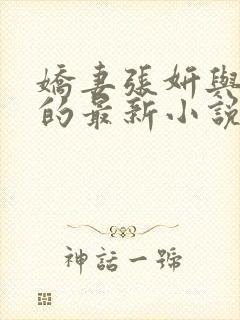 嬌妻張妍與
的最新小說
神話一號